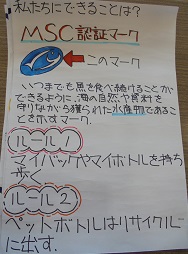 私たちにできることは?
MSC認証マーク
このマーク
いつまでも魚を食べ続けることが
できるように、海の自然や資料を
守りながら獲られた水産物であるこ
とを示すマーク.
ルール1
マイバッグやマイボトルを持ち
歩く
ルール2
ペットボトルはリサイクル
に出す.